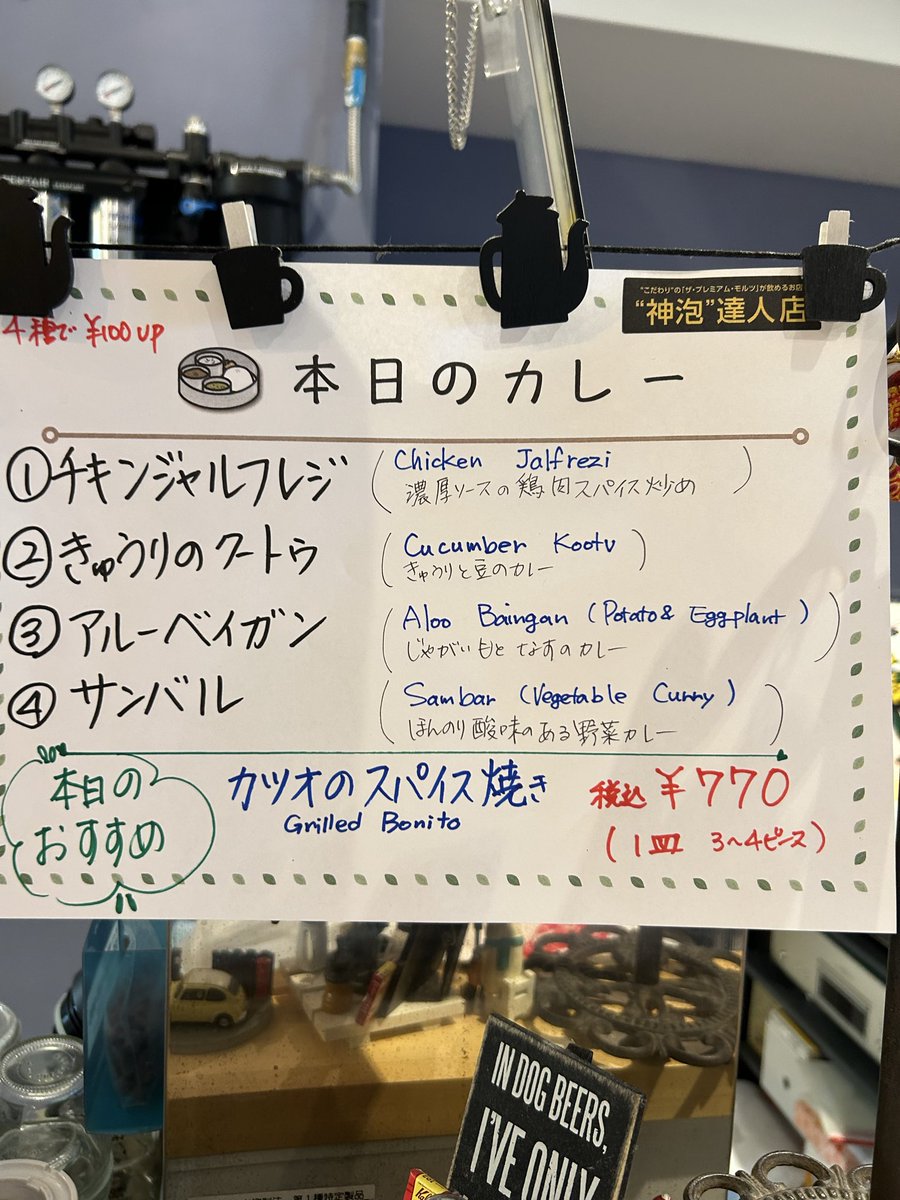 "こだわり"の「ザ・プレミアム・モルツ」が飲めるお店
"神泡"達人店
4種で ¥100 UP
本日のカレー
①チキンジャルフレジ (Chicken Jalfrezi
濃厚ソースの鶏肉スパイス炒め)
②きゅうりのクートゥ (Cucumber Kootu
きゅうりと豆のカレー)
③アルーベイガン (Aloo Baingan (Potato & Eggplant)
じゃがいもとなすのカレー)
④サンバル (Sambar (Vegetable Curry)
ほんのり酸味のある野菜カレー)
本日の
おすすめ
カツオのスパイス焼き
Grilled Bonito
税込 ¥770
(1皿 3〜4ピース)
IN DOG BEERS,
I'VE ONLY